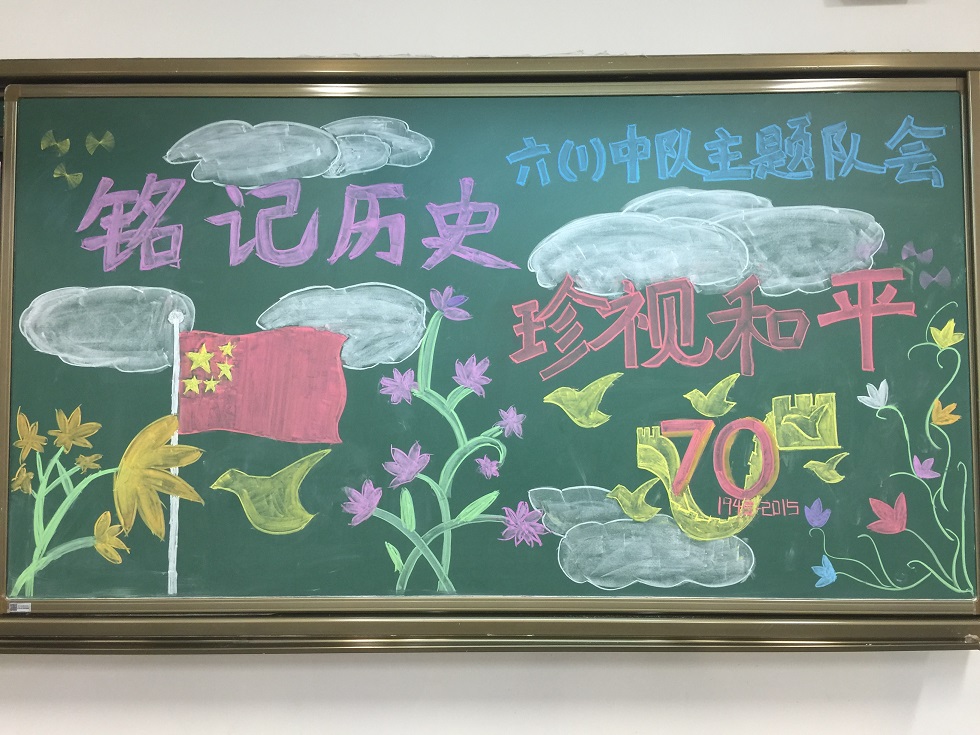 六(1)中队主题队会
铭记历史
珍视和平
70
1945-2015